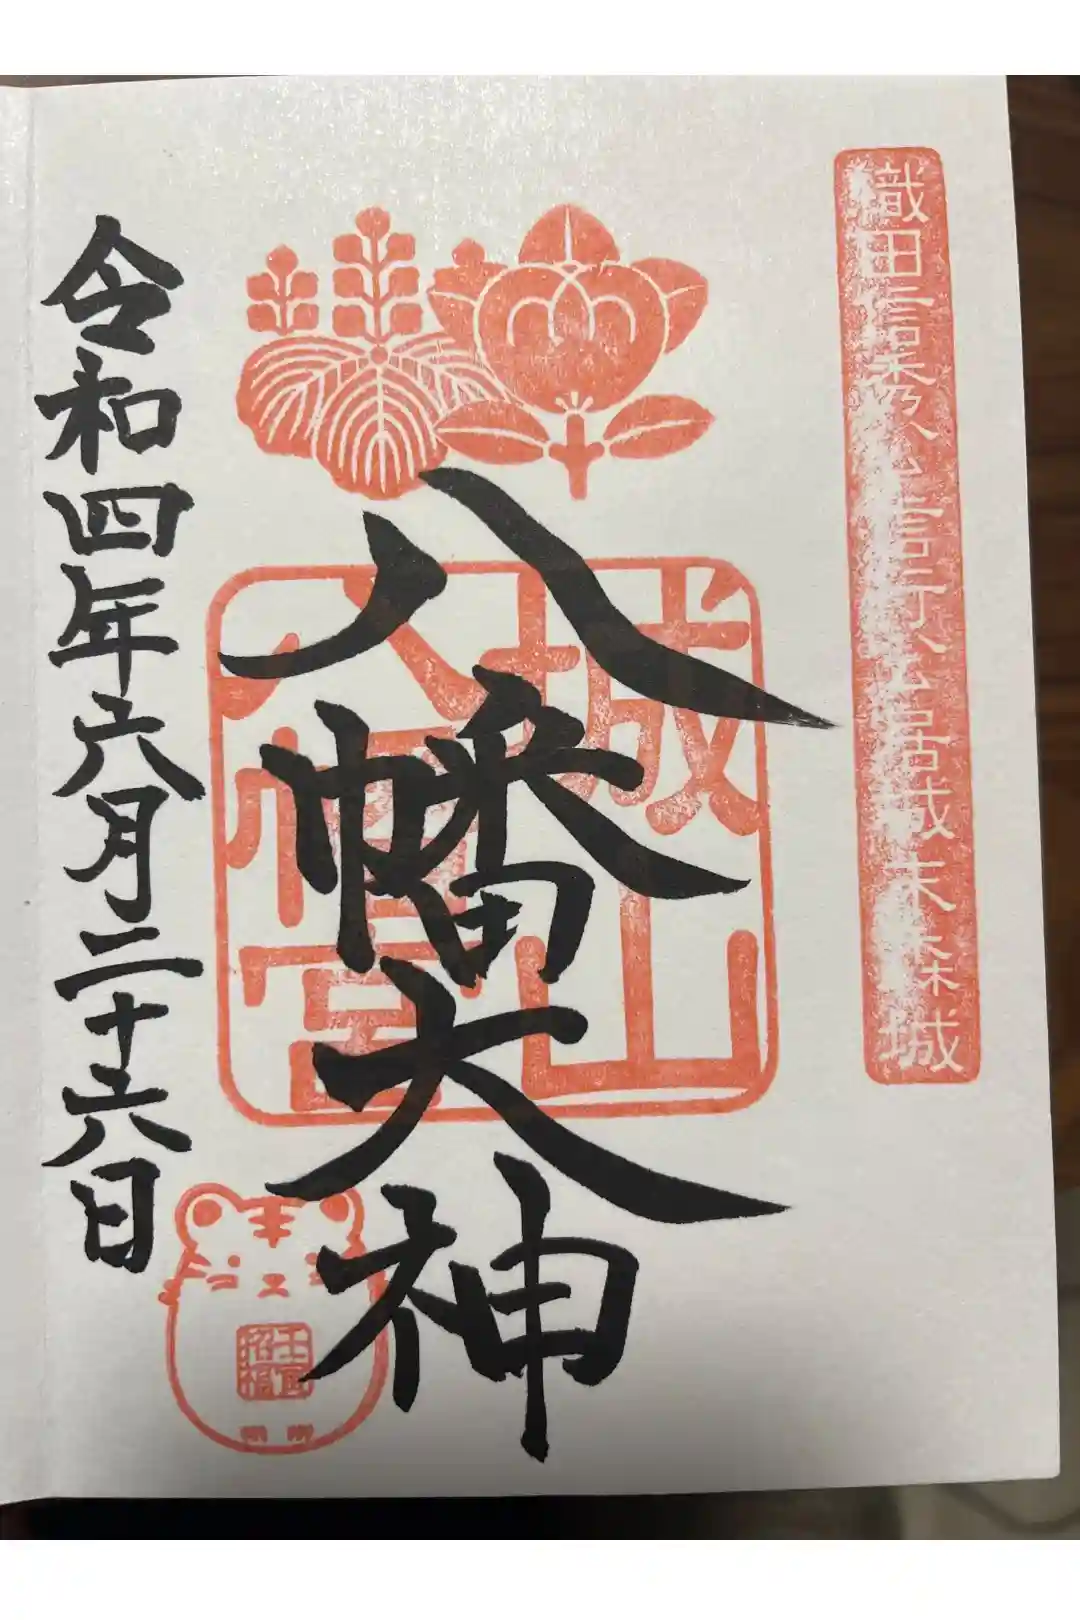 織田信秀公信行公居城末森城
城山
八幡宮
八幡大神
令和四年六月二十六日